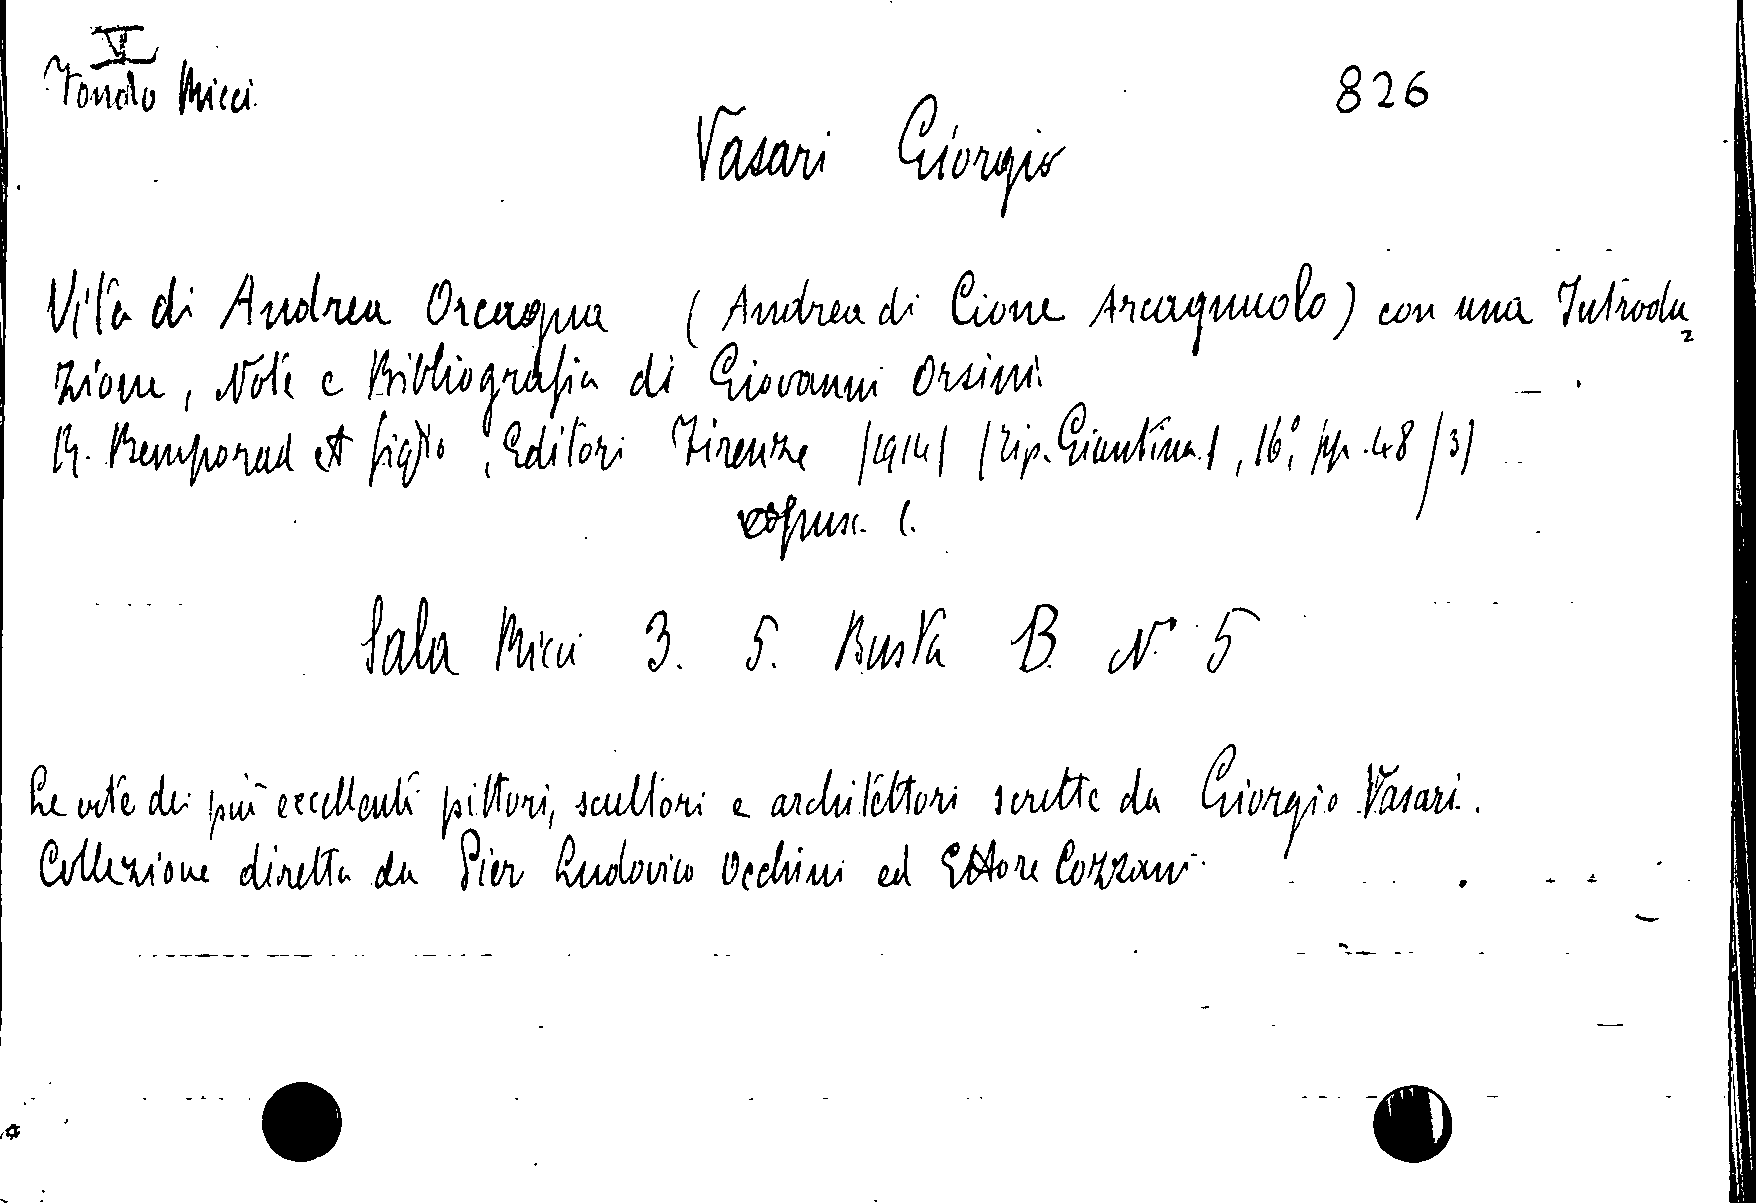 VI
Fondo Micci.
826
Vasari Giorgio
Vita di Andrea Orcagna (Andrea di Cione Arcagnuolo) con una Introdu=
zione, Note e Bibliografia di Giovanni Orsini.
R. Bemporad et figlio, Editori Firenze /1914/ /Tip. Giuntina/, 16°, pp. 48 /3/
opusc. l.
Sala Micci 3. 5. Busta B. N° 5
Le vite dei più eccellenti pittori, scultori e architettori scritte da Giorgio Vasari.
Collezione diretta da Pier Ludovico Occhini ed Ettore Cozzani.